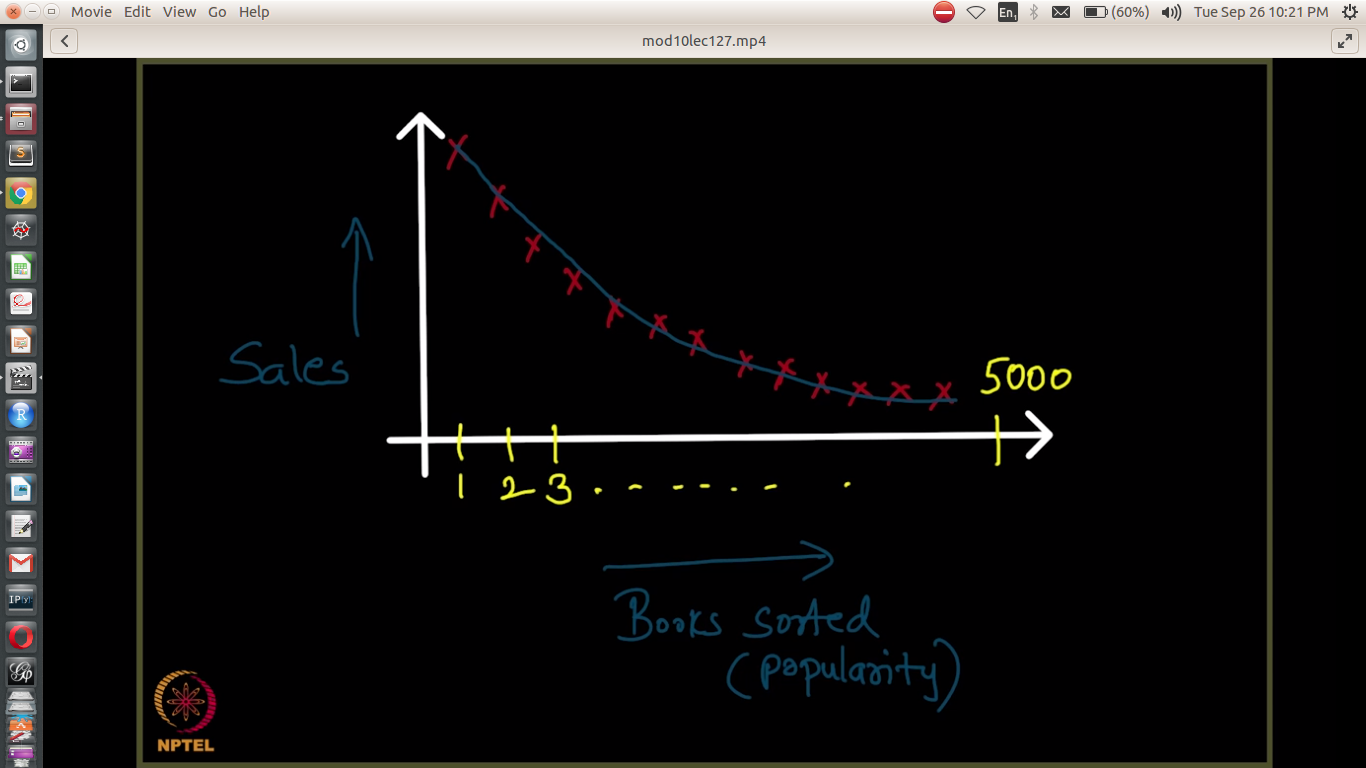 Movie Edit View Go Help
En1 (60%) Tue Sep 26 10:21 PM
mod10lec127.mp4
Sales
5000
1 2 3 . - - - - . - .
Books sorted
(popularity)
S
R
IP[y]:
NPTEL